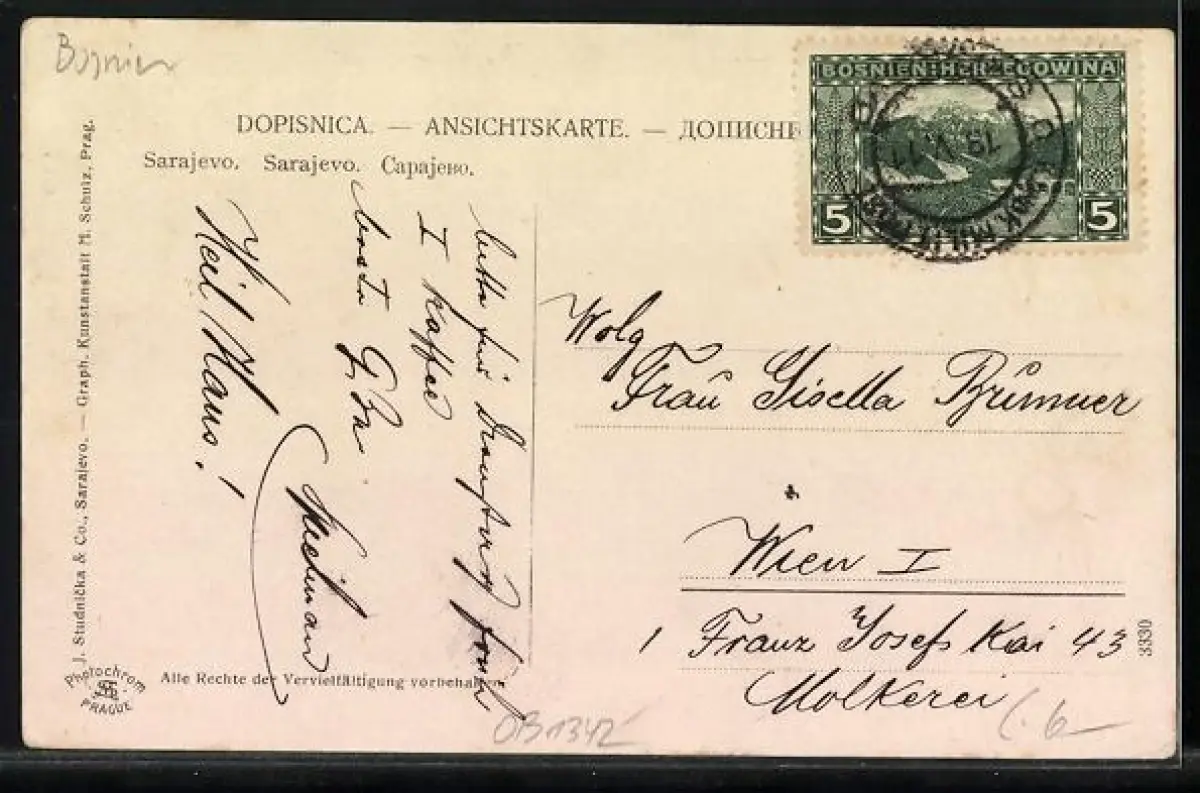 Bosnien
BOSNIEN-HERCEGOWINA
5 5
19.V.11
DOPISNICA. — ANSICHTSKARTE. — ДОПИСНЕ
Sarajevo. Sarajevo. Сарајево.
bitte für
früh
I Kaffee
Heil Haus!
Wolg
Frau Gisella Brunner
Wien I
1 Franz Josefs Kai 43
Molkerei
3330
J. Studnička & Co., Sarajevo. — Graph. Kunstanstalt M. Schulz, Prag.
Photochrom
PRAGUE
Alle Rechte der Vervielfältigung vorbehalten
OB1342
6